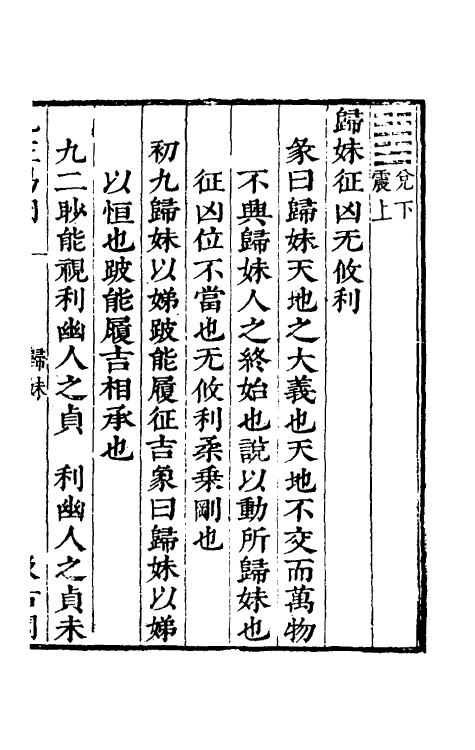 兌下
震上
歸妹征凶无攸利
彖曰歸妹天地之大義也天地不交而萬物
不興歸妹人之終始也說以動所歸妹也
征凶位不當也无攸利柔乗剛也
初九歸妹以娣跛能履征吉象曰歸妹以娣
以恒也跛能履吉相承也
九二眇能視利幽人之貞 利幽人之貞未
歸妹